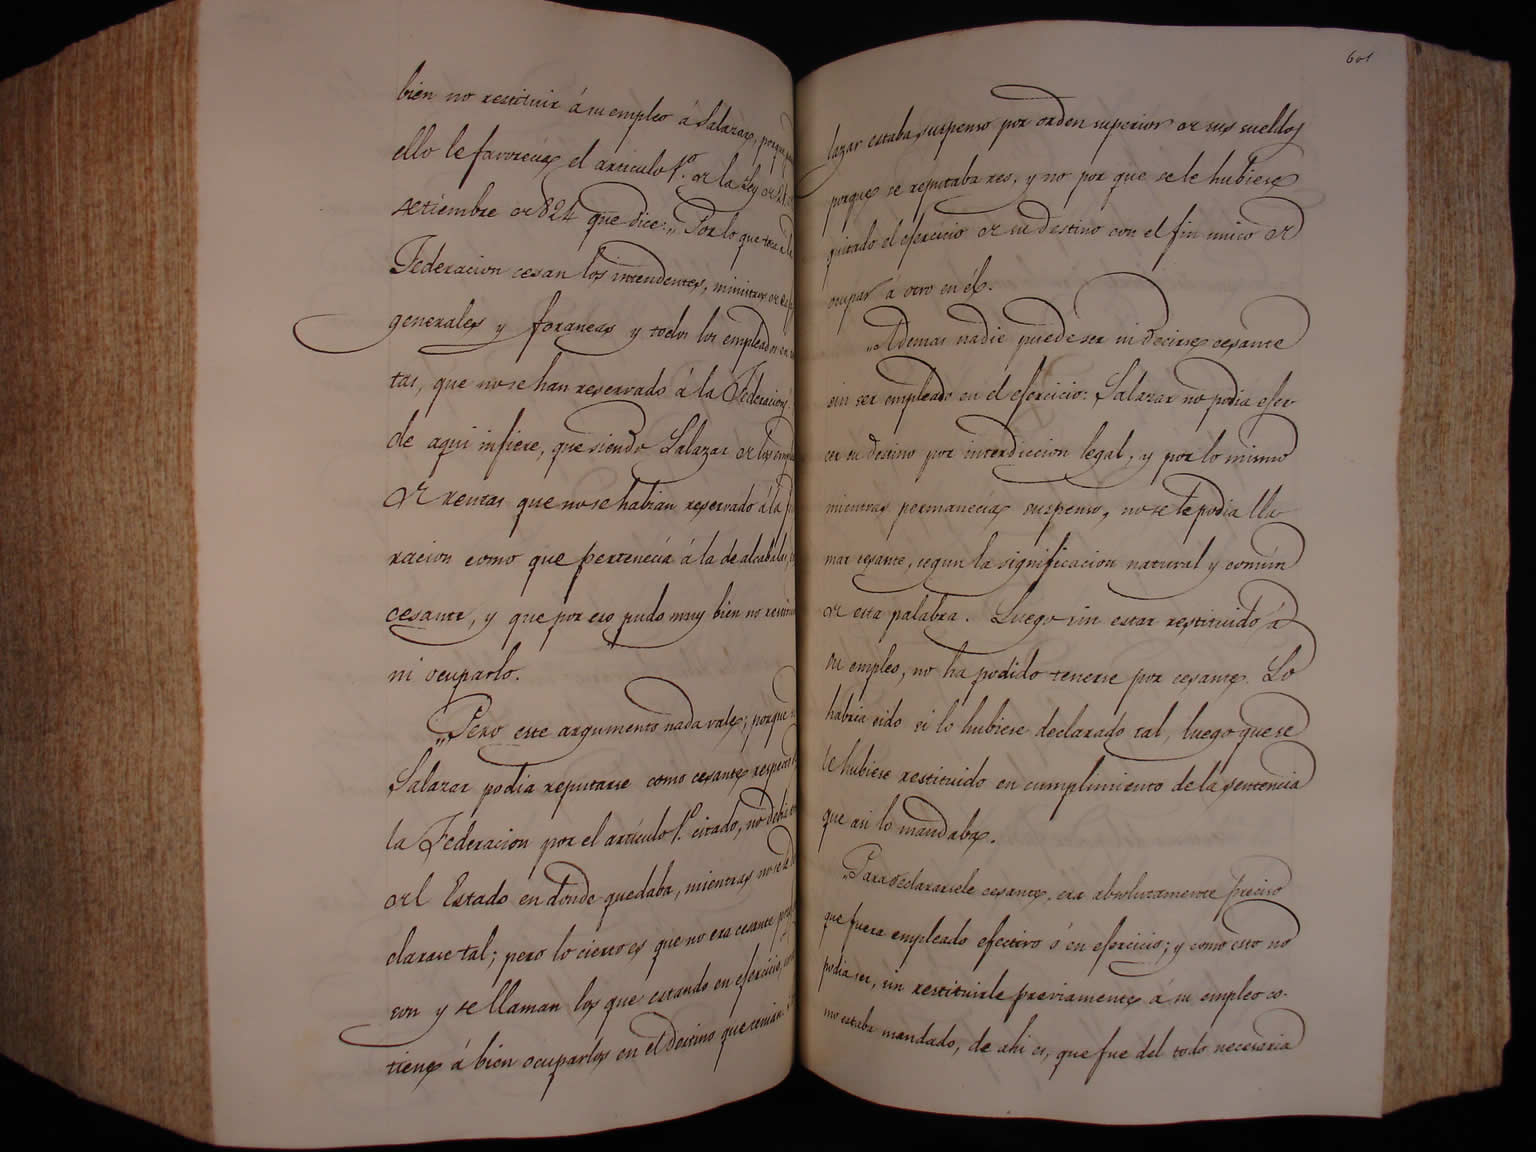 bien no restituir á su empleo á Salazar, porque
ello le favorecia el articulo 1.º de la ley de 21
setiembre de 824 que dice: „Por lo que toca á la
Federacion cesan los intendentes, ministros de
generales y foraneas y todos los empleados en
tas, que no se han reservado á la Federacion.
de aqui infiere, que siendo Salazar de los
de rentas que no se habian reservado á la
racion como que pertenecia á la de alcabalas,
cesante, y que por eso pudo muy bien no
ni ocuparlo.
„Pero este argumento nada vale; porque
Salazar podia reputarse como cesante
la Federacion por el artículo 1.º citado, no debia
del Estado en donde quedaba, mientras no se
clarase tal; pero lo cierto es que no era cesante
son y se llaman los que estando en ejercicio,
tiene á bien ocuparlos en el destino que tenian.
601
lazar estaba suspenso por orden superior de sus sueldos
porque se reputaba reo, y no por que se le hubiese
quitado el ejercicio de su destino con el fin unico de
ocupar á otro en él.
„Ademas nadie puede ser ni decirse cesante
sin ser empleado en el ejercicio: Salazar no podia ejer-
cer su destino por interdiccion legal, y por lo mismo
mientras permanecia suspenso, no se le podia lla-
mar cesante, segun la significacion natural y comun
de esta palabra. Luego sin estar restituido á
su empleo, no ha podido tenerse por cesante. Lo
habria sido si lo hubiese declarado tal, luego que se
le hubiese restituido en cumplimiento de la sentencia
que asi lo mandaba.
„Para declararsele cesante, era absolutamente preciso
que fuera empleado efectivo ó en ejercicio; y como esto no
podia ser, sin restituirle previamente á su empleo co-
mo estaba mandado, de ahi es, que fue del todo necesaria